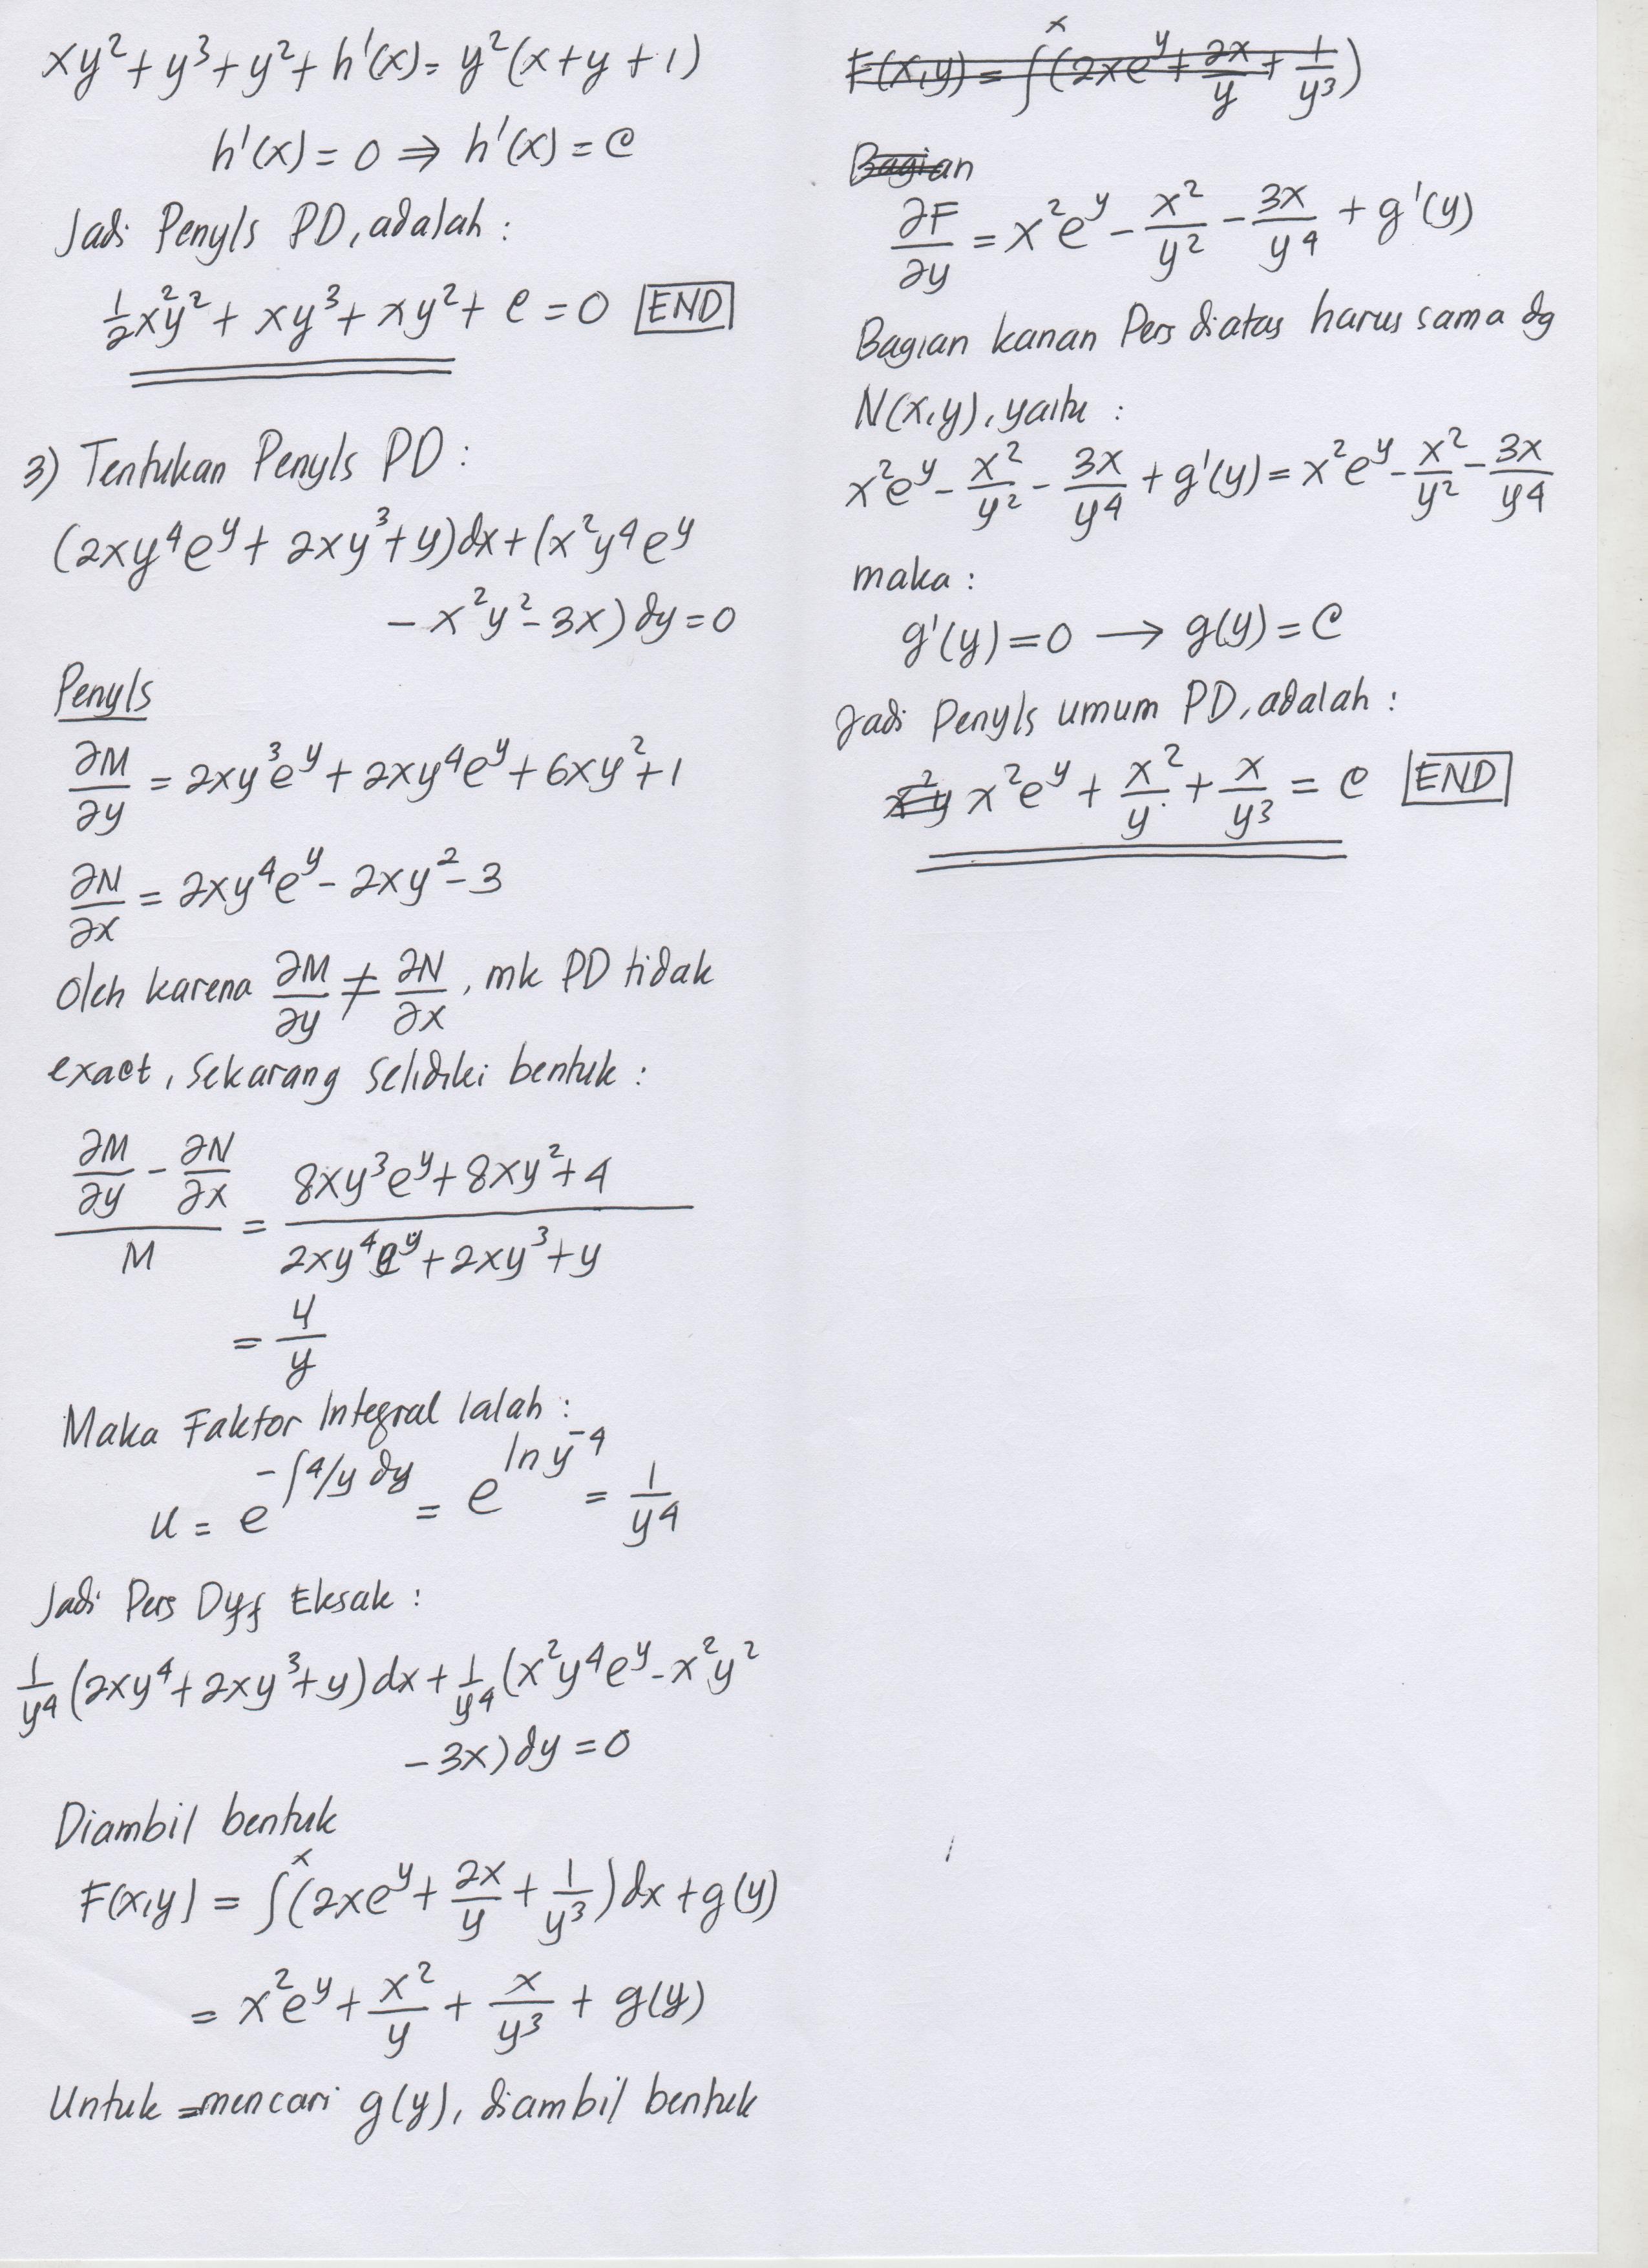 xy²+y³+y²+h'(x)=y²(x+y+1)
h'(x)=0⇒h'(x)=C
Jadi Penyls PD, adalah:
½x²y²+xy³+xy²+C=0 END
3) Tentukan Penyls PD:
(2xy⁴e^y+2xy³+y)dx+(x²y⁴e^y
-x²y²-3x)dy=0
Penyls
∂M/∂y=2xy³e^y+2xy⁴e^y+6xy²+1
∂N/∂x=2xy⁴e^y-2xy²-3
Oleh karena ∂M/∂y≠∂N/∂x, mk PD tidak
exact, Sekarang Selidiki bentuk:
(∂M/∂y-∂N/∂x)/M=(8xy³e^y+8xy²+4)/(2xy⁴e^y+2xy³+y)
=4/y
Maka Faktor Integral Ialah:
u=e^(-∫4/y dy)=e^(ln y⁻⁴)=1/y⁴
Jadi Pers Dyf Eksak:
1/y⁴(2xy⁴+2xy³+y)dx+1/y⁴(x²y⁴e^y-x²y²
-3x)dy=0
Diambil bentuk
F(x,y)=∫^x(2xe^y+2x/y+1/y³)dx+g(y)
=x²e^y+x²/y+x/y³+g(y)
Untuk =mencari g(y), diambil bentuk
F(x,y)=∫^x(2xe^y+2x/y+1/y³)
Bagian
∂F/∂y=x²e^y-x²/y²-3x/y⁴+g'(y)
Bagian kanan Pers diatas harus sama dg
N(x,y), yaitu:
x²e^y-x²/y²-3x/y⁴+g'(y)=x²e^y-x²/y²-3x/y⁴
maka:
g'(y)=0→g(y)=C
Jadi Penyls umum PD, adalah:
x²y x²e^y+x²/y+x/y³=C END